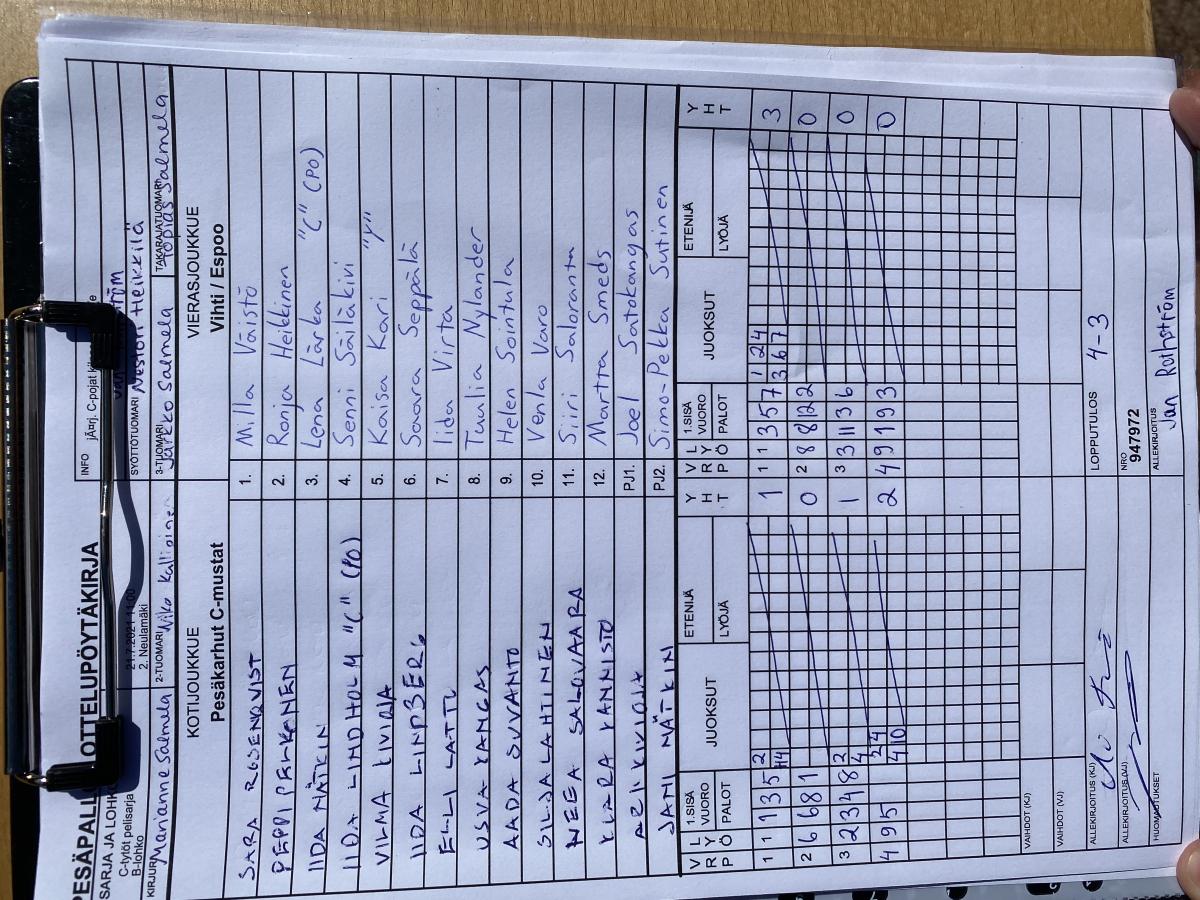 PESÄPALLO OTTELUPÖYTÄKIRJA
SARJA JA LOHKO
C-tytöt pelisarja
B-lohko
21.7.2021 11:00
2. Neulamäki
INFO
KIRJURI Marianne Salmela
2-TUOMARI Niko Kallioinen
3-TUOMARI Jarkko Salmela
SYÖTTÖTUOMARI Nestori Heikkilä
TAKARAJATUOMARI Topias Salmela
KOTIJOUKKUE VIERASJOUKKUE
Pesäkarhut C-mustat Vihti / Espoo
SARA ROSENQVIST 1. Milla Väistö
PEPPI PELKONEN 2. Ronja Heikkinen
IIDA NÄTKIN 3. Lena Lärka "C" (PO)
IIDA LINDHOLM "C" (PO) 4. Senni Säiläkivi
VILMA KIVIOJA 5. Kaisa Kari "Y"
IIDA LINDBERG 6. Saara Seppälä
ELLI LATTU 7. Iida Virta
USVA KANGAS 8. Tuulia Nylander
AADA SUVANTO 9. Helen Sointula
SILJA LAHTINEN 10. Venla Varo
NEEA SALOVAARA 11. Siiri Saloranta
KLARA KANNISTO 12. Martta Smeds
ARI KIVIOJA PJ1. Joel Satokangas
JANI NÄTKIN PJ2. Simo-Pekka Sutinen
V R P L Y Ö 1.SISÄ VUORO PALOT JUOKSUT ETENIJÄ LYÖJÄ Y H T V R P L Y Ö 1.SISÄ VUORO PALOT JUOKSUT ETENIJÄ LYÖJÄ Y H T
1 1 1 3 5 2 1 1 1 3 5 7 1 2 4 3
4 4 3 6 7
2 6 6 8 1 0 2 8 8 12 2 0
3 2 3 4 8 2 1 3 3 11 3 6 0
4
4 9 5 2 4 2 4 9 1 9 3 0
4 10
VAIHDOT (KJ)
VAIHDOT (VJ)
ALLEKIRJOITUS (KJ) LOPPUTULOS 4-3
ALLEKIRJOITUS (VJ) NRO
947972
HUOMAUTUKSET ALLEKIRJOITUS
Jan Rothström